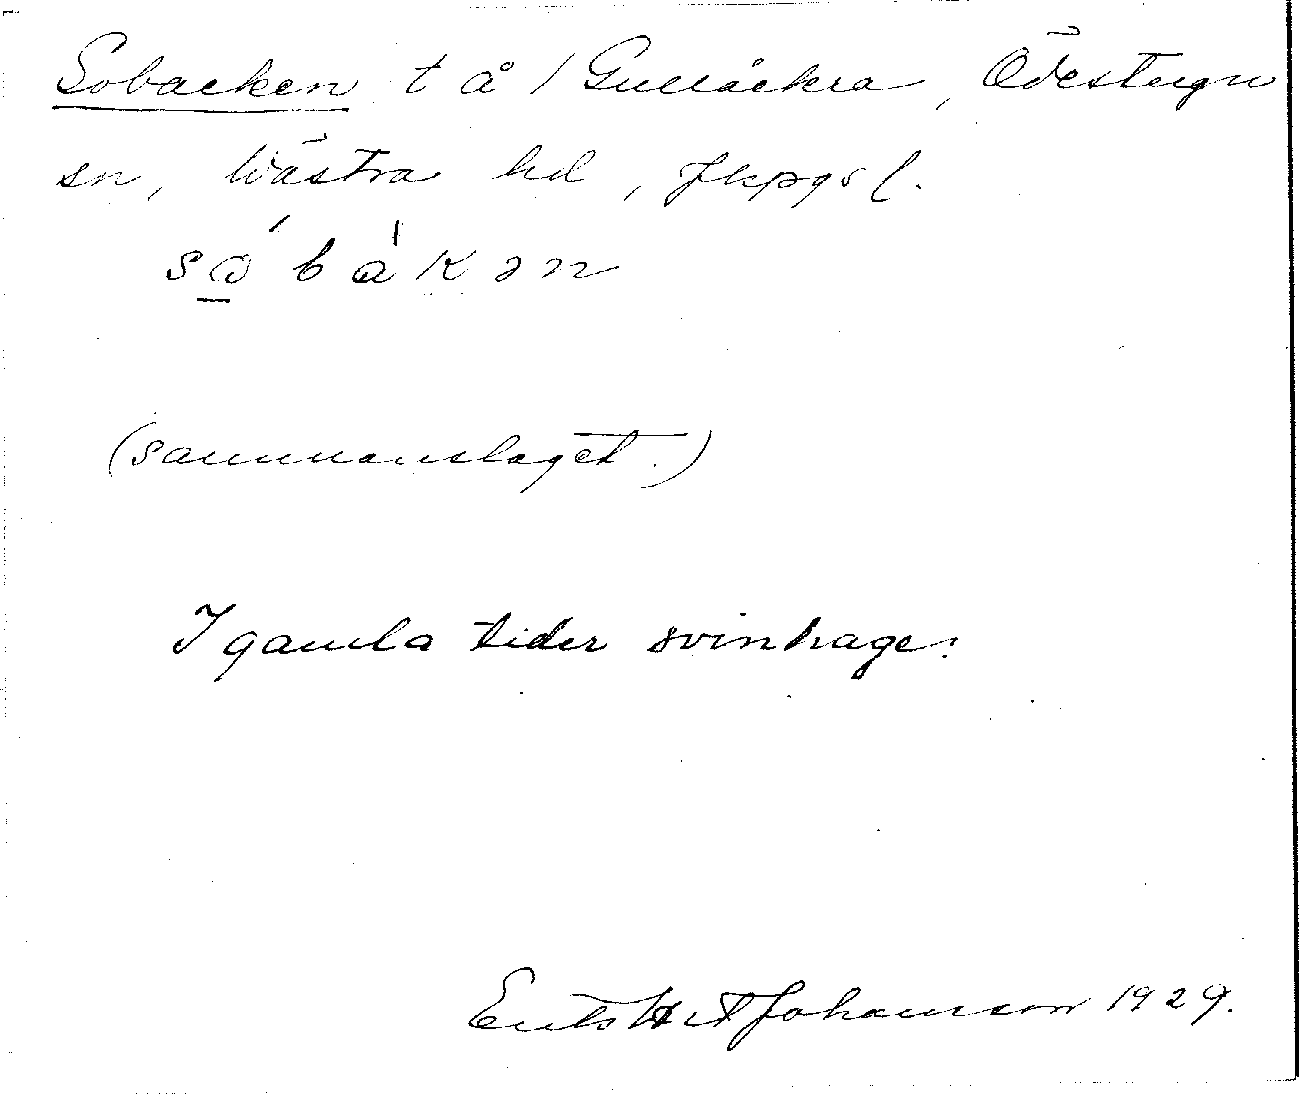 Sobacken t å / Gullåckra, Ödestugu
sn, Västra hd, Jkpgs l.
sobakən
(sammanslaget.)
I gamla tider svinhage.
Enl Johansson 1929.